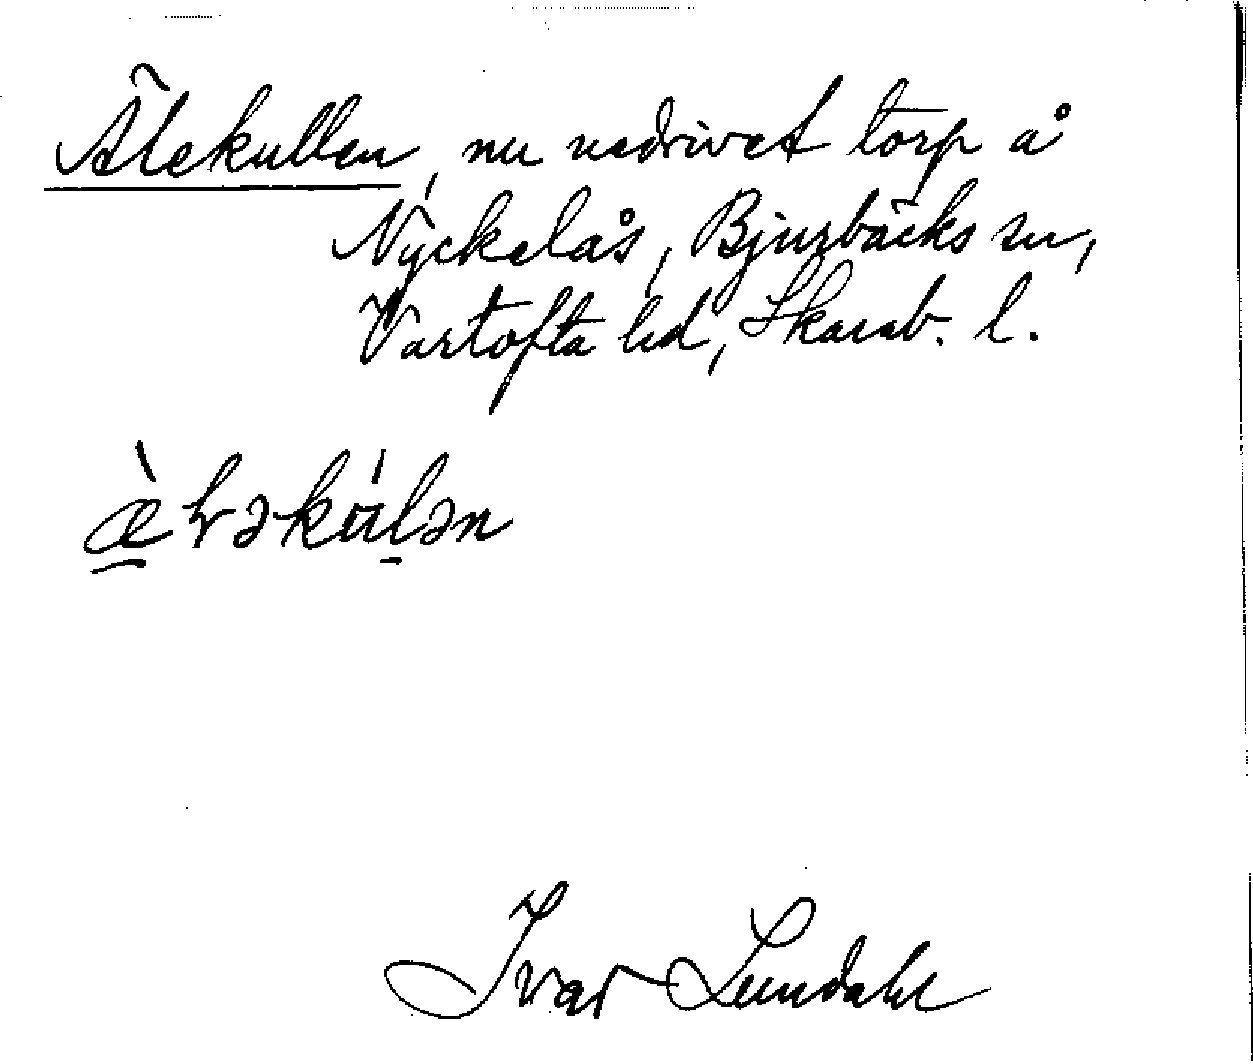 Älekullen, nu nedrivet torp å
Nyckelås, Bjurbäcks sn,
Vartofta hd, Skarab. l.
Ivar Lundahl